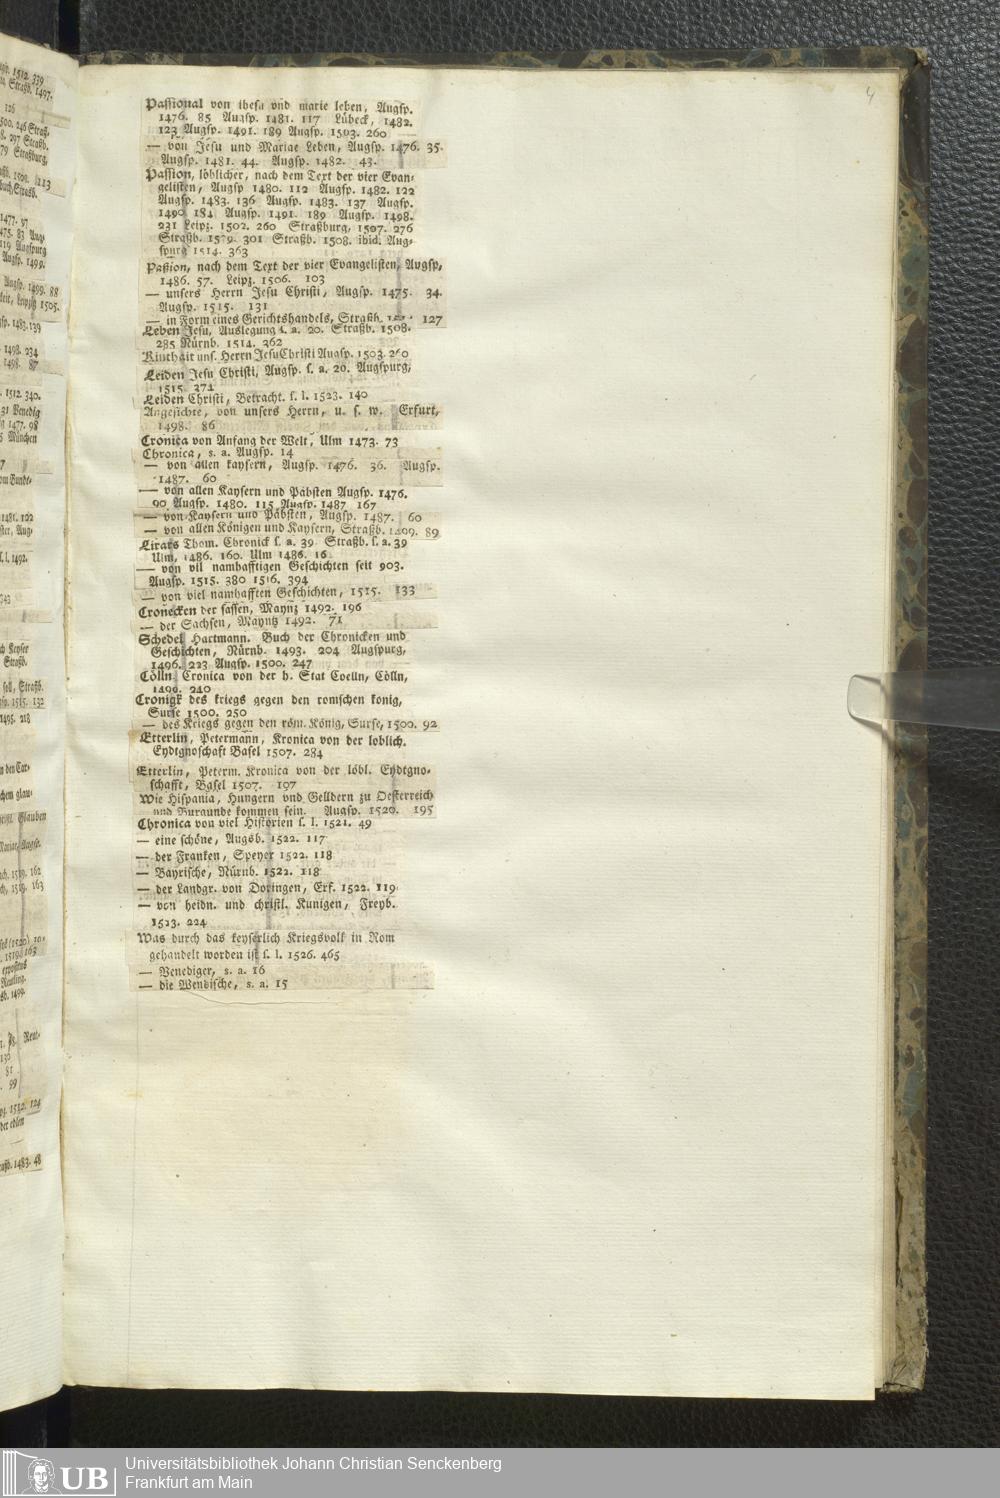 4
Passional von ihesu vnd marie leben, Augsp.
1476. 85 Augsp. 1481. 117 Lübeck, 1482.
123 Augsp. 1491. 189 Augsp. 1503. 260
— von Jesu und Mariae Leben, Augsp. 1476. 35.
Augsp. 1481. 44. Augsp. 1482. 43.
Passion, löblicher, nach dem Text der vier Evan-
gelisten, Augsp 1480. 112 Augsp. 1482. 122
Augsp. 1483. 136 Augsp. 1483. 137 Augsp.
1490 184 Augsp. 1491. 189 Augsp. 1498.
231 Leipz. 1502. 260 Straßburg, 1507. 276
Straßb. 1509. 301 Straßb. 1508. ibid. Aug-
spurg 1514. 363
Passion, nach dem Text der vier Evangelisten, Augsp,
1486. 57. Leipz. 1506. 103
— unsers Herrn Jesu Christi, Augsp. 1475. 34.
Augsp. 1515. 131
— in Form eines Gerichtshandels, Straßb. 127
Leben Jesu, Auslegung s. a. 20. Straßb. 1508.
285 Nürnb. 1514. 362
Kintheit uns. Herrn Jesu Christi Augsp. 1503. 260
Leiden Jesu Christi, Augsp. s. a. 20. Augspurg,
1515. 374
Leiden Christi, Betracht. s. l. 1523. 140
Angesichte, von unsers Herrn, u. s. w. Erfurt,
1498. 86
Cronica von Anfang der Welt, Ulm 1473. 73
Chronica, s. a. Augsp. 14
— von allen kaysern, Augsp. 1476. 36. Augsp.
1487. 60
— von allen Kaysern und Päbsten Augsp. 1476.
90 Augsp. 1480. 115 Augsp. 1487 167
— von Kaysern und Päbsten, Augsp. 1487. 60
— von allen Königen und Kaysern, Straßb. 1499. 89
Lirars Thom. Chronick s. a. 39 Straßb. s. a. 39
Ulm, 1486. 160. Ulm 1486. 16
— von vil namhafftigen Geschichten seit 903.
Augsp. 1515. 380 1516. 394
— von viel namhafften Geschichten, 1515. 133
Cronecken der sassen, Maynz 1492. 196
— der Sachsen, Mayntz 1492. 71
Schedel Hartmann. Buch der Chronicken und
Geschichten, Nürnb. 1493. 204 Augspurg,
1496. 223 Augsp. 1500. 247
Cölln. Cronica von der h. Stat Coelln, Cölln,
1499. 240
Cronigk des kriegs gegen den romischen konig,
Surse 1500. 250
— des Kriegs gegen den röm. König, Surse, 1500. 92
Etterlin, Petermann, Kronica von der loblich.
Eydtgnoschaft Basel 1507. 284
Etterlin, Peterm. Kronica von der löbl. Eydtgno-
schafft, Basel 1507. 197
Wie Hispania, Hungern vnd Gelldern zu Oesterreich
und Burgunde kommen sein. Augsp. 1520. 195
Chronica von viel Historien s. l. 1521. 49
— eine schöne, Augsb. 1522. 117
— der Franken, Speyer 1522. 118
— Bayrische, Nürnb. 1522. 118
— der Landgr. von Doringen, Erf. 1522. 119
— von heidn. und christl. Kunigen, Freyb.
1523. 224
Was durch das keyserlich Kriegsvolk in Rom
gehandelt worden ist s. l. 1526. 465
— Venediger, s. a. 16
— die Wendische, s. a. 15
UB
Universitätsbibliothek Johann Christian Senckenberg
Frankfurt am Main